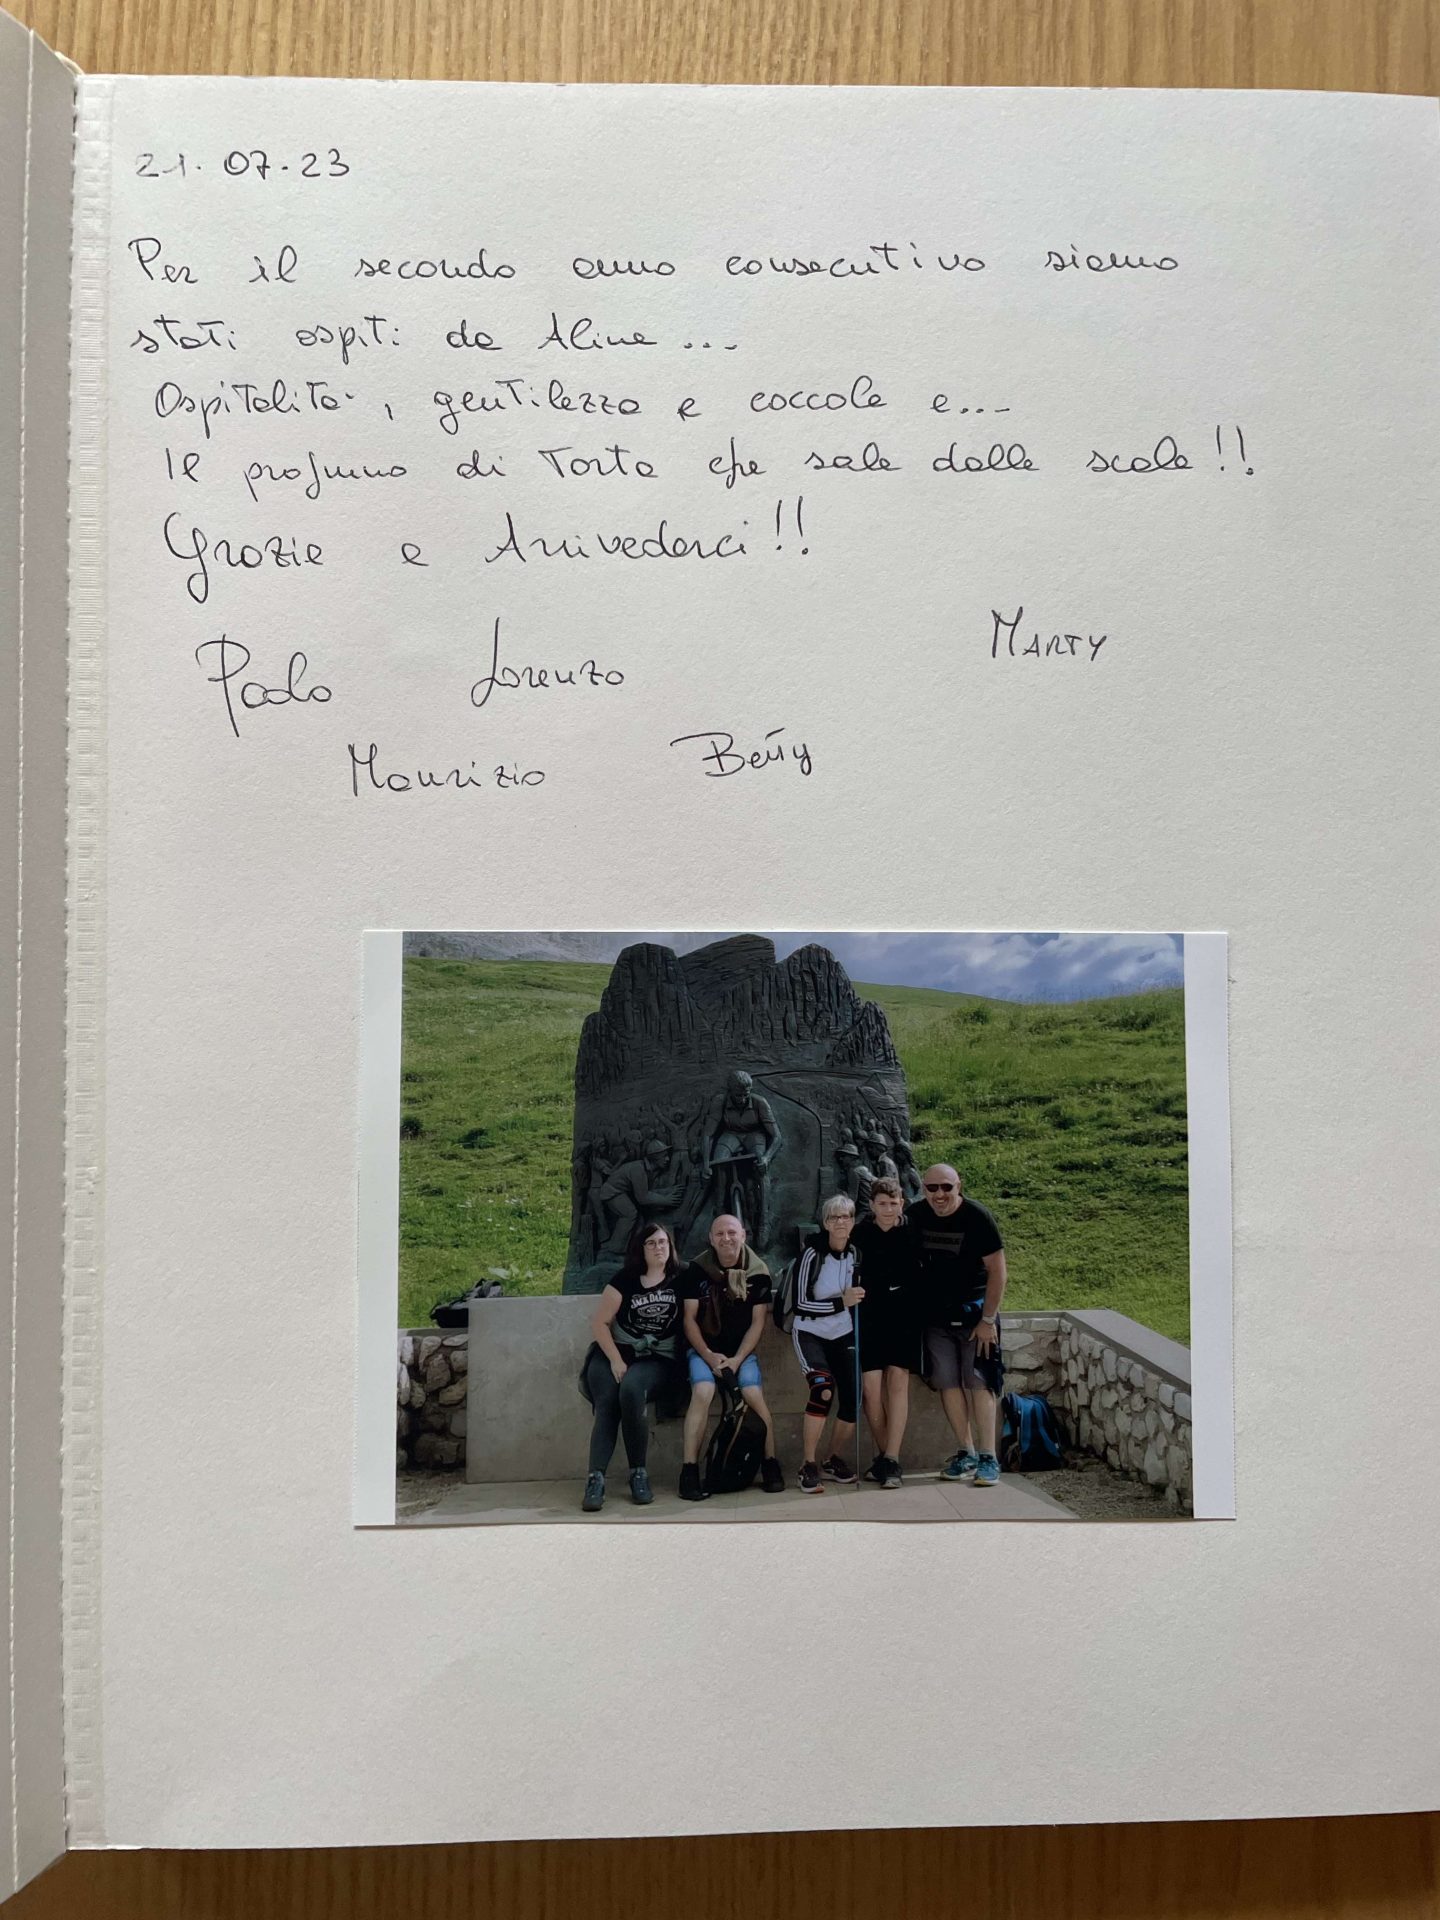 21.07.23
Per il secondo anno consecutivo siamo
stati ospiti da Aline...
Ospitalità, gentilezza e coccole e...
Il profumo di Torta che sale dalle scale!!
Grazie e Arrivederci!!
MARTY
Paolo Lorenzo
Maurizio Betty
JACK DANIEL'S